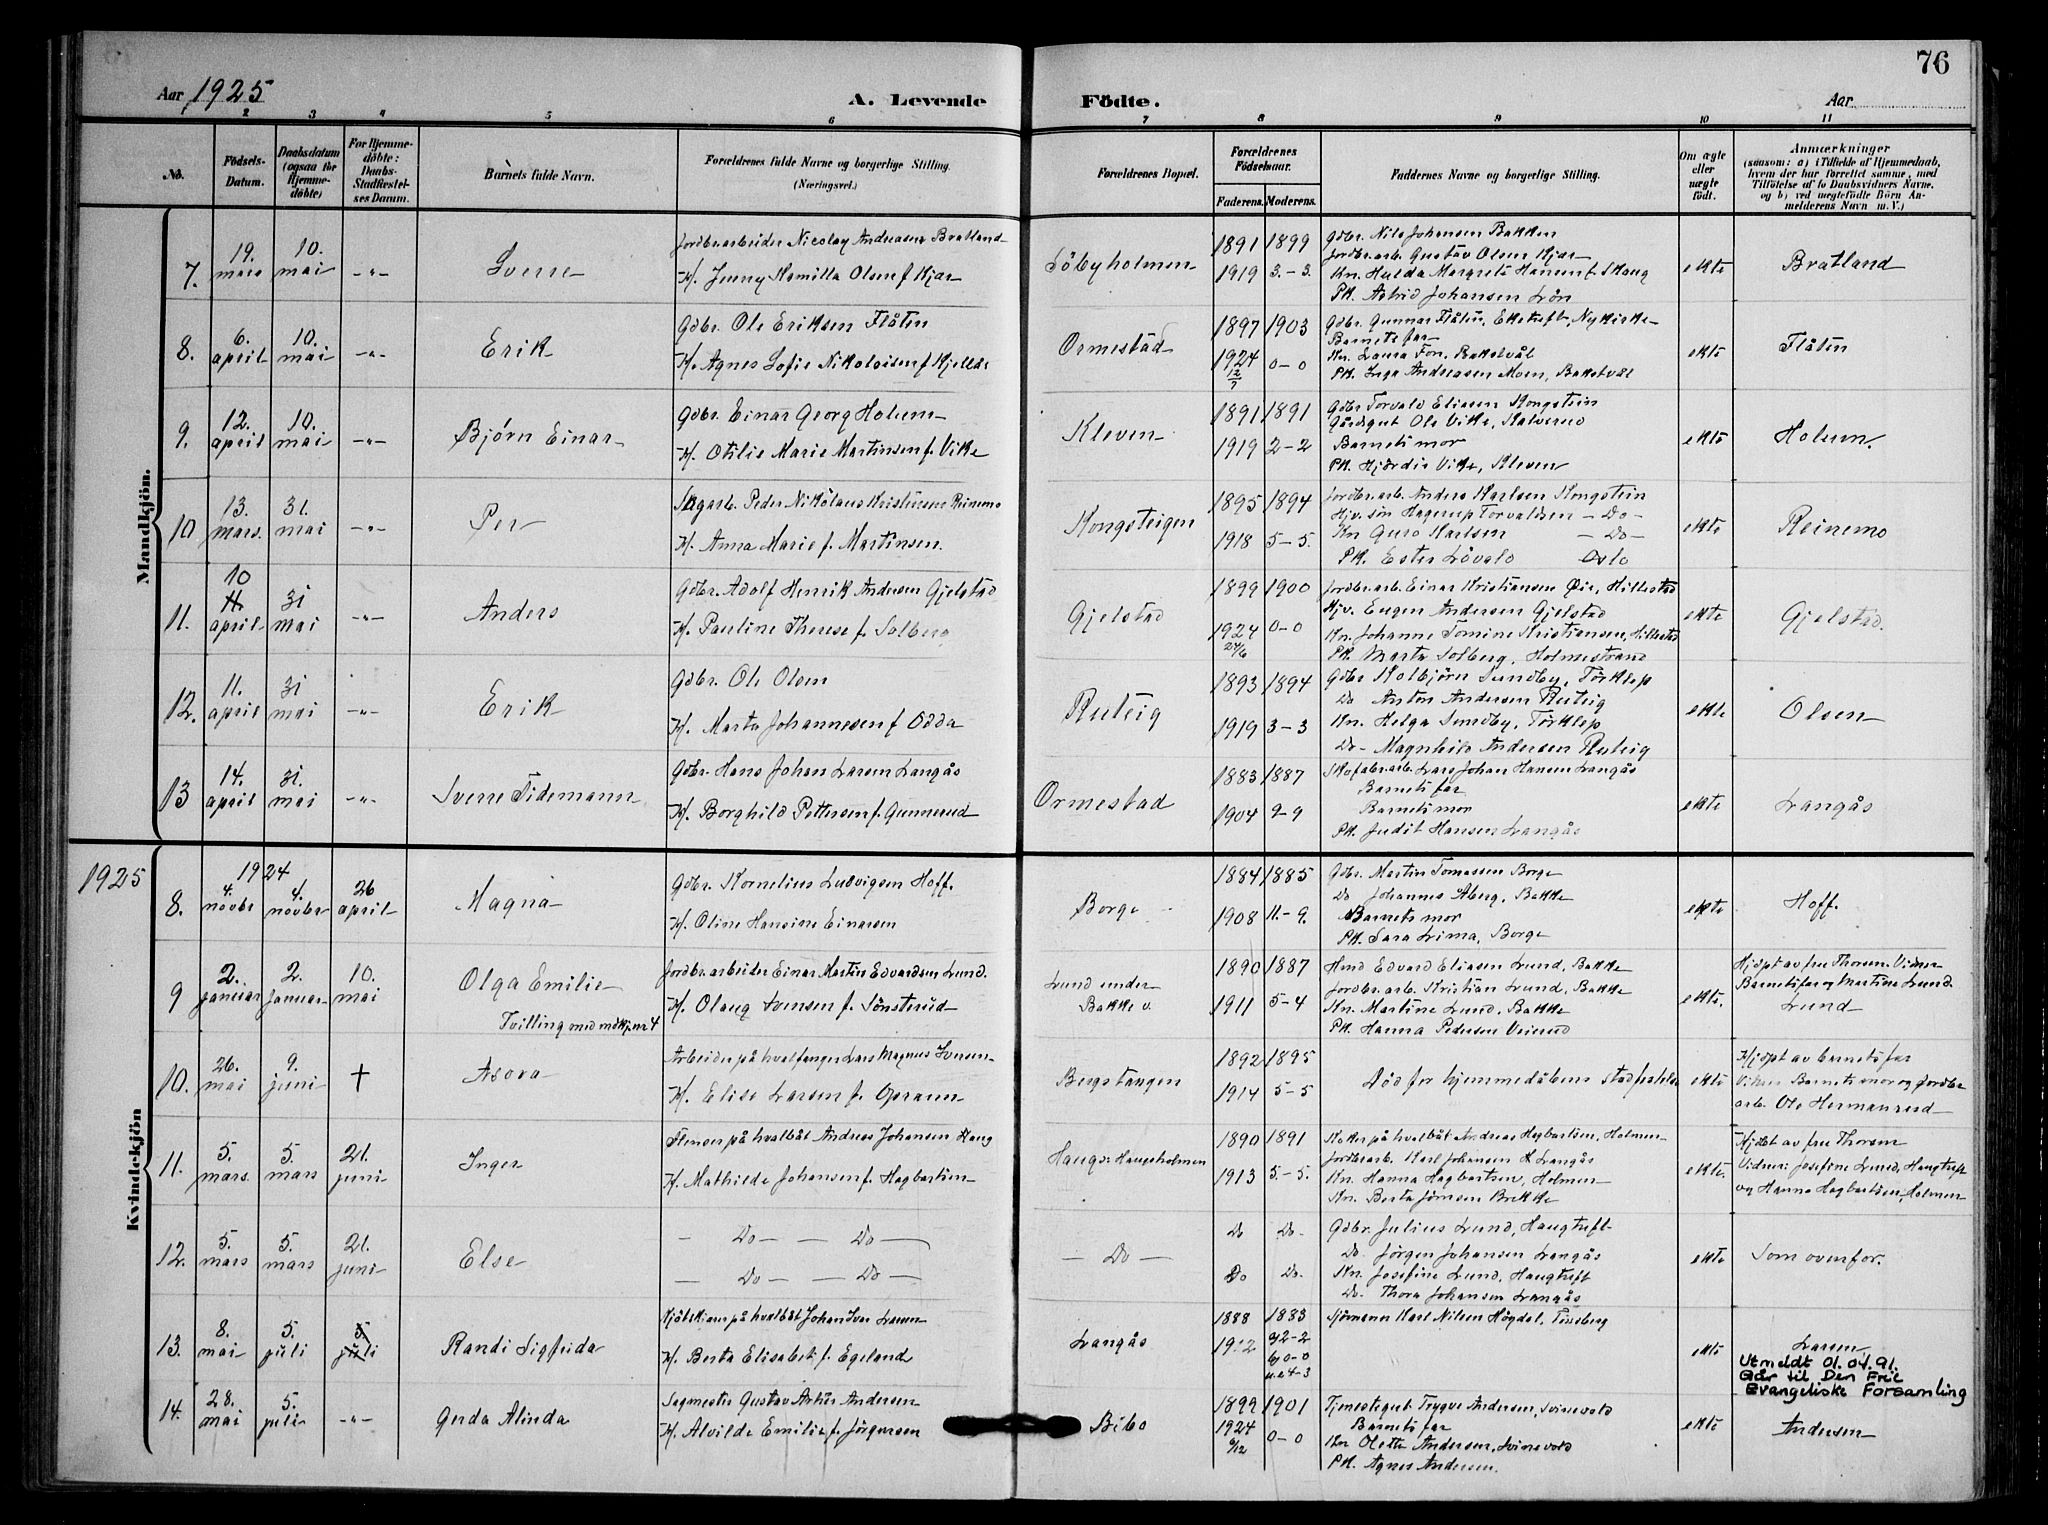 76
Aar 1925
A. Levende
Födte.
Aar
2 3 4 5 6 7 8 9 10 11
No.
Födsels-Datum.
Daabsdatum (ogsaa for Hjemme-döbte)
For Hjemme-döbte: Daabs-Stadfæstel-ses Datum.
Barnets fulde Navn.
Forældrenes fulde Navne og borgerlige Stilling.
(Næringsvei.)
Forældrenes Bopæl.
Forældrenes Födselsaar.
Faderens. Moderens.
Faddernes Navne og borgerlige Stilling.
Om ægte eller uægte födt.
Anmærkninger
(saasom: a) i Tilfælde af Hjemmedaab, hvem der har forrettet samme, med Tilföielse af to Daabsvidners Navne. og b) ved uægtefödte Börn An-melderens Navn m. V.)
Mandkjön.
7. 19. mars 10. mai -"- Sverre
Jordbr.arbeider Nicolay Andreasen Bratland
H. Jenny Kamilla Olsen f. Kjær
Söbyholmen
1891 1899
1919 3.-3.
Gdbr. Nils Johansen Bakken
Jordbr.arb. Gustav Olsen Kjær
Kn. Hulda Margrete Hansen f. Skaug
Pk. Astrid Johansen Lön
ekte Bratland
8. 6. april 10. mai -"- Erik
Gdbr. Ole Eriksen Flåten
H. Agnes Sofie Nikolaisen f. Kjelldr
Ormestad
1897 1903
1924 0-0
12/7
Gdbr. Gunnar Flåten, Eketuft, Nykirke
Barnets far
Kn. Laura Fon, Bakstvål
Pk. Inga Andreasen Moen, Bakstvål
ekte Flåten
9. 12. april 10. mai -"- Bjørn Einar
Gdbr. Einar Georg Holum
H. Otilie Marie Martinsen f. Vike
Kleven
1891 1891
1919 2-2
Gdbr Torvald Eliasen Kongstein
Gårdsgut Ole Vike, Kalverud
Barnets mor
Pk. Hjördis Vike, Kleven
ekte Holum.
10. 13. mars. 31. mai -"- Per
Sagarb. Peder Nikolaus Kristensen Reinemo
H. Anna Marie f. Martinsen.
Kongsteigen
1895 1894
1918 5-5.
Jordbr.arb. Anders Karlsen Kongstein
Hjv. sön Hagerup Torvaldsen - Do -
Kn Guro Karlsen - Do -
Pk. Ester Lövald Oslo
ekte Reinemo
11. 10 april 31 mai -"- Anders
Gdbr. Adolf Henrik Andersen Gjelstad
H. Pauline Therese f. Solberg
Gjelstad
1899 1900
1924 0-0
24/6
Jordbr.arb. Einar Kristiansen Øir, Hillestad
Hjv. Eugen Andersen Gjelstad
Kn. Johanne Tomine Kristiansen, Hillestad
Pk. Marta Solberg, Holmestrand
ekte Gjelstad.
12. 11. april 31 mai -"- Erik
Gdbr. Ole Olsen
H. Marta Johannesen f. Odda
Ruteig
1893 1894
1919 3-3
Gdbr Kolbjörn Sundby, Törklep
Do Anton Andersen Ruteig
Kn. Helga Sundby, Törklep
Do - Magnhild Andersen Ruteig
ekte Olsen
13 14. april 31. mai -"- Sverre Tidemann
Gdbr. Hans Johan Larsen Langås
H. Borghild Pettersen f. Gunnerud
Ormestad
1883 1887
1904 9-9
Skofabr.arb. Lars Johan Hansen Langås
Barnets far
Barnets mor
Pk. Judit Hansen Langås
ekte Langås
1925
Kvindekjön
8. 1924 4. novbr 4. novbr 26 april Magna
Gdbr. Kornelius Ludvigsen Hoff.
H. Oline Hansine Einarsen
Borge
1884 1885
1908 11.-9.
Gdbr. Martin Tomassen Borge
Do Johannes Åberg, Bakke
Barnets mor
Pk. Sara Lima, Borge
ekte Hoff.
9 2. januar 2. januar 10. mai Olga Emilie
Tvilling med mdkj. nr 4
Jordbr.arbeider Einar Martin Edvardsen Lund.
H. Olaug Svensen f. Sönsterud
Lund under Bakke v.
1890 1887
1911 5-4
Hmd Edvard Eliasen Lund, Bakke
Jordbr.arb. Kristian Lund, Bakke
Kn. Martine Lund, Bakke
Pk. Hanna Pedersen Veierud
ekte.
Hjdpt av fru Thorsen. Vidner
Barnets far og Martine Lund.
Lund
10. 26. mai 9. juni † Asora
Arbeider på hvalfanger Lars Magnus Iversen
H. Elise Larsen f. Opraen
Bergstangen
1892 1895
1914 5-5
Död for hjemmedåbens stadfestelse
ekte
Hjdpt av barnets far
Vidner Barnets mor og jordbr
arb. Ole Hermanrud
11. 5. mars. 5. mars 21. juni Inger
Flenser på hvalbåt Andreas Johansen Haug
H. Mathilde Johansen f. Hagbartsen
Haug v. Haugsholmen
1890 1891
1913 5-5.
Koker på hvalbåt Andreas Hagbartsen, Holmen
Jordbr.arb. Karl Johansen Langås
Kn. Hanna Hagbartsen, Holmen
Kn. Berta Jonsen Bakke
ekte.
Hjdpt av fru Thorsen
Vidner: Josefine Lund, Haugtuft
og Hanna Hagbartsen, Holmen
12. 5. mars 5. mars 21. juni Else
- Do - - Do -
- Do - - Do -
- Do -
Do Do
Do Do
Gdbr. Julius Lund, Haugtuft
Do. Jörgen Johansen Langås
Kn. Josefine Lund, Haugtuft
Do. Thora Johansen Langås
ekte Som ovenfor.
13. 8. mai 5. juli 5 juli Randi Sigfrida
Kjötskjærer på hvalbåt Johan Iver Larsen
H. Berta Elisabet f. Egeland
Langås
1888 1883
1912 a) 2-2
b) 0-0
u.e 4-3
Sjömann Karl Nilsen Högdal, Tönsberg
ekte Larsen
Utmeldt 01.04.91.
Går til Den Frie
Evangeliske Forsamling
14. 28. mai 5. juli -"- Gerda Alinda
Sagmester Gustav Artur Andersen
H. Alvilde Emilie f. Jörgensen
Bibo
1899 1901
1924 0-0
9/12
Tjenestegut Trygve Andersen, Svinevold
Barnets far
Kn Olette Andersen, Svinevold
Pk. Agnes Andersen.
ekte Andersen